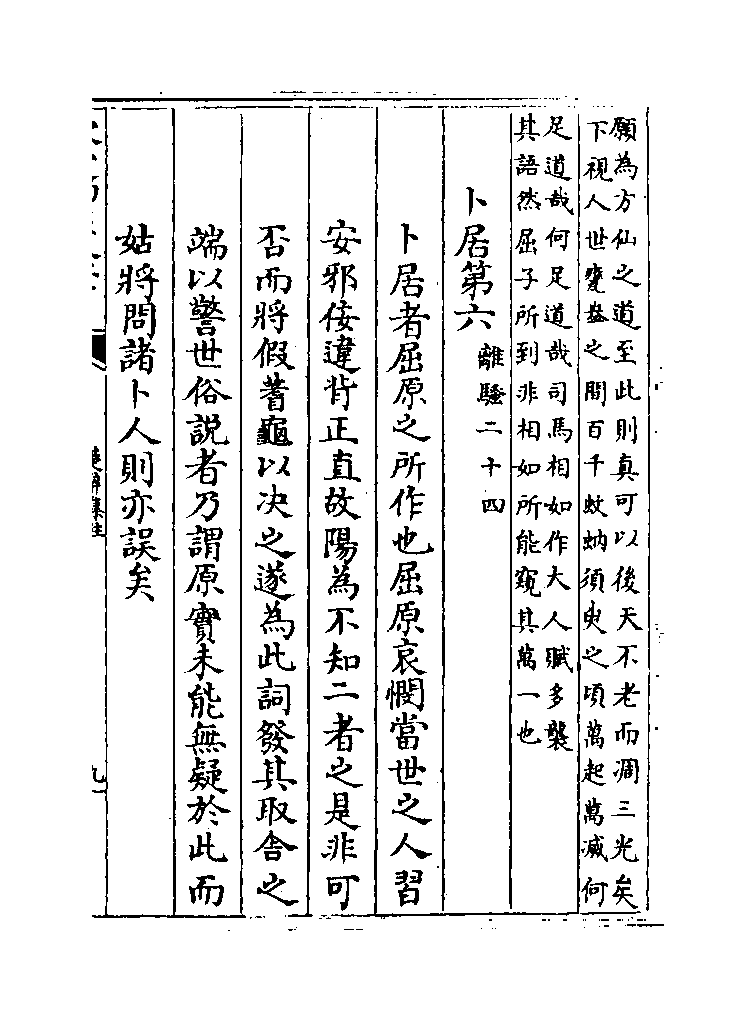 願為方仙之道至此則真可以後天不老而凋三光矣
下視人世甕盎之間百千蚊蚋須臾之頃萬起萬滅何
足道哉何足道哉司馬相如作大人賦多襲
其語然屈子所到非相如所能窺其萬一也
卜居第六 離騷二十四
卜居者屈原之所作也屈原哀憫當世之人習
安邪佞違背正直故陽為不知二者之是非可
否而將假蓍龜以决之遂為此詞發其取舍之
端以警世俗説者乃謂原實未能無疑於此而
姑將問諸卜人則亦誤矣
楚辭集注
九